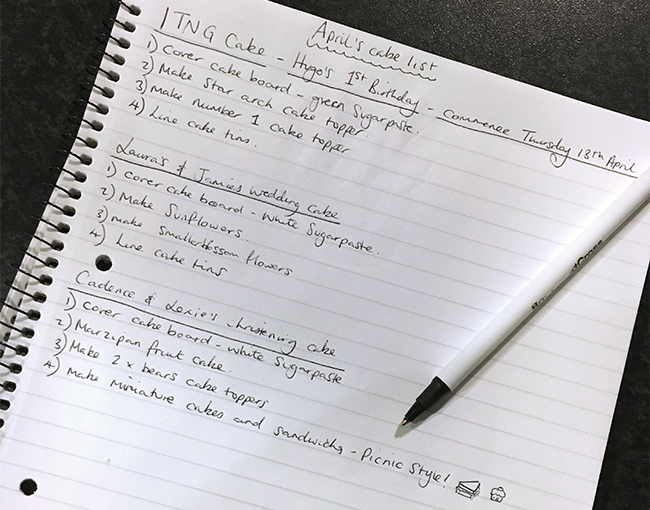 April's cake list
ITNG Cake - Hugo's 1st Birthday - Commence Thursday 13th April
1) Cover cake board - green Sugarpaste.
2) Make Star arch cake topper
3) Make number 1 cake topper
4) Line cake tins.
Laura's & Jamie's Wedding Cake
1) Cover cake board - White Sugarpaste.
2) Make Sunflowers.
3) make small blossom flowers
4) Line cake tins
Cadence & Lexie's christening cake
1) Cover cake board - white Sugarpaste
2) Marzipan fruit cake.
3) Make 2 x bears cake toppers
4) Make miniature cakes and sandwichs - Picnic Style!